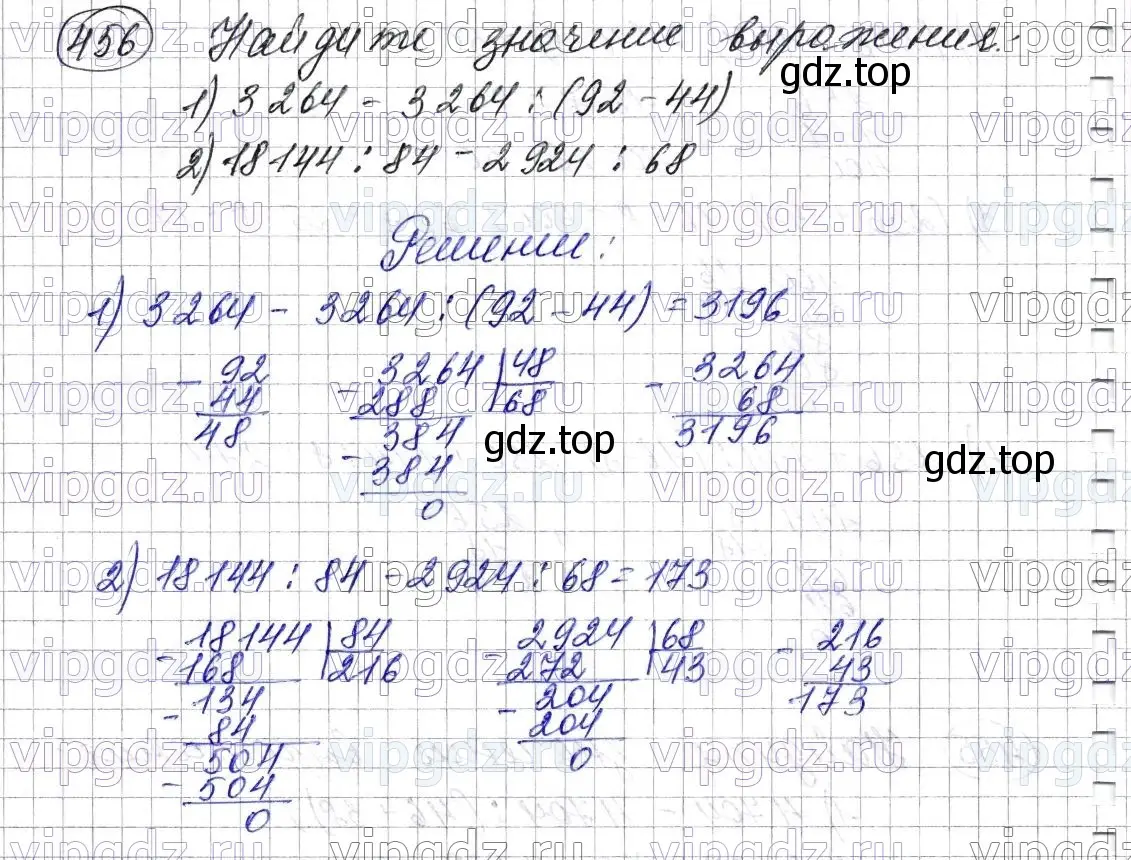 456 Найдите значение выражения:
1) 3264 - 3264 : (92 - 44)
2) 18144 : 84 - 2924 : 68
Решение:
1) 3264 - 3264 : (92 - 44) = 3196
- 92 - 3264 | 48 - 3264
44 288 | 68 68
48 384 3196
- 384
0
2) 18144 : 84 - 2924 : 68 = 173
- 18144 | 84 - 2924 | 68 - 216
168 | 216 272 | 43 43
- 134 - 204 173
84 204
- 504 0
504
0
gdz.top
gdz.top
gdz.top
vipgdz.ru